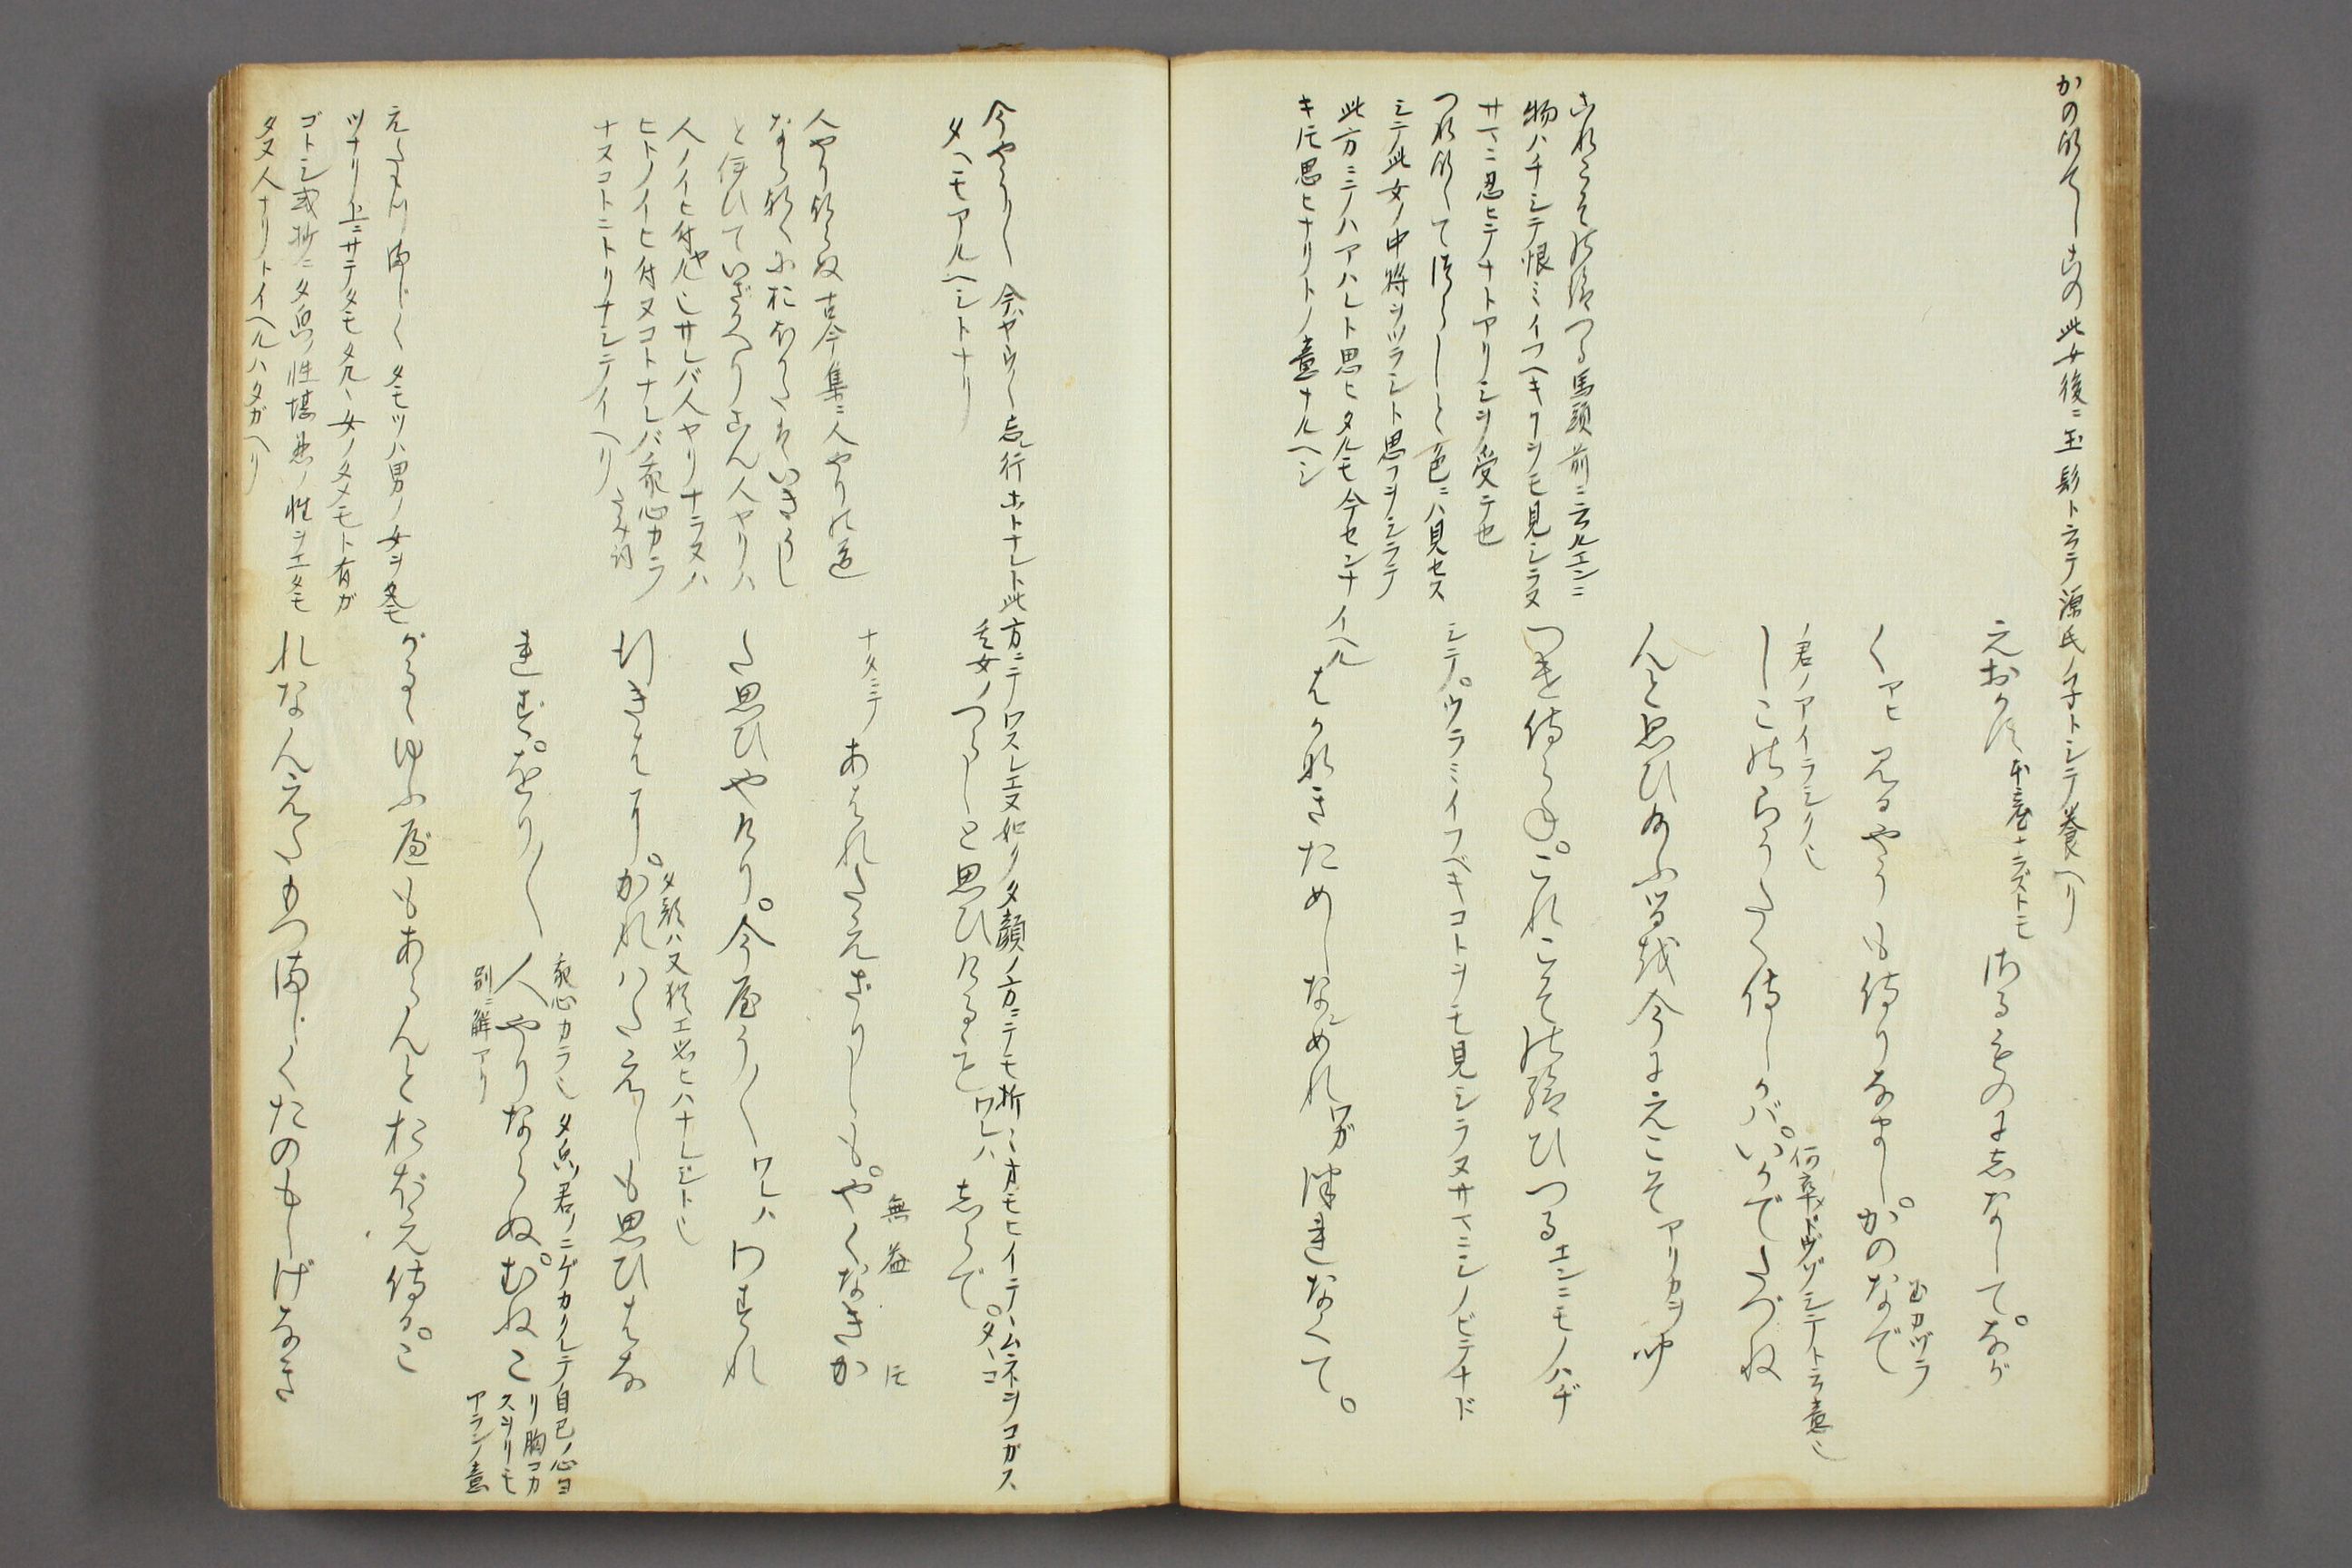 かのなでしこの此女後ニ玉鬘ト云テ源氏ノ子トシテ養ヘリ
えおかず 本意ナラズトモ さるものにしなして。なが
く アヒ 見るやうも侍りなまし。かのなで 玉カヅラ
ノ君ノアイラシク也
しこのらうたく侍しかバ。いかでたづね 何卒ドウゾシテト云意也
んと思ひ給ふるを今にえこそ アリカヲ 聞
つけ侍らね。これこその給ひつる エンニモノハヂ
シテ。ウラミイフベキコトヲモ見シラヌサマニシノビテナド
イヘル はかなきためしなめれ ワガ つれなくて。
これこその給つる馬頭前ニ云ルエンニ
物ハヂシテ恨ミイフヘキヿヲモ見シラヌ
サマニ忍ヒテナトアリシヲ受テ也
つれなくてつらしと色ニハ見セス
シテ此女ノ中将ヲツラシト思フヲシラテ
此方ニノハアハレト思ヒタルモ今センナ
キ片思ヒナリトノ意ナルヘシ
今やう〱 今ヤウ〱忘行ホトナレト此方ニテワスレエヌ如ク夕顔ノ方ニテモ折〱方モヒイテハムネヲコガス
夕ヘモアルヘシトナリ
女ノつらしと思ひけるを ワレハ しらで。
あはれたえざりしも。やくなきか 無益 片
た思ひやけり。今やう〱 ワレハ わすれ
行きはに。かれはたえしも思ひはな
夕顔ハ又
れず。をり〱 人やりならぬ。むねこ
我心カラ也 夕顔ノ君ノニゲカクレテ自己ノ心ヨ
リ胸コカ
スヲリモ
アランノ意
別ニ解アリ
人やりならぬ古今集ニ人やりの道
ならなくに大かたはいきうし
と伊ひていざかへりなん人ヤリハ
人ノイヒ付ヤル也サレバ人ヤリナラヌハ
ヒトノイヒ付ヌコトナレバ我心カラ
ナスコトニトリナシテイヘリ
ゆふべもあらんとおぼえ侍る。こ
れなんえたもつまじくたのもしげなき
えたもつまじく タモツハ男ノ女ヲタモ
ツナリ上ニサテタモタルヽ女ノタメモト有ガ
ゴトシ或抄ニ夕顔ノ性
タヌ人ナリトイヘルハタガヘリ